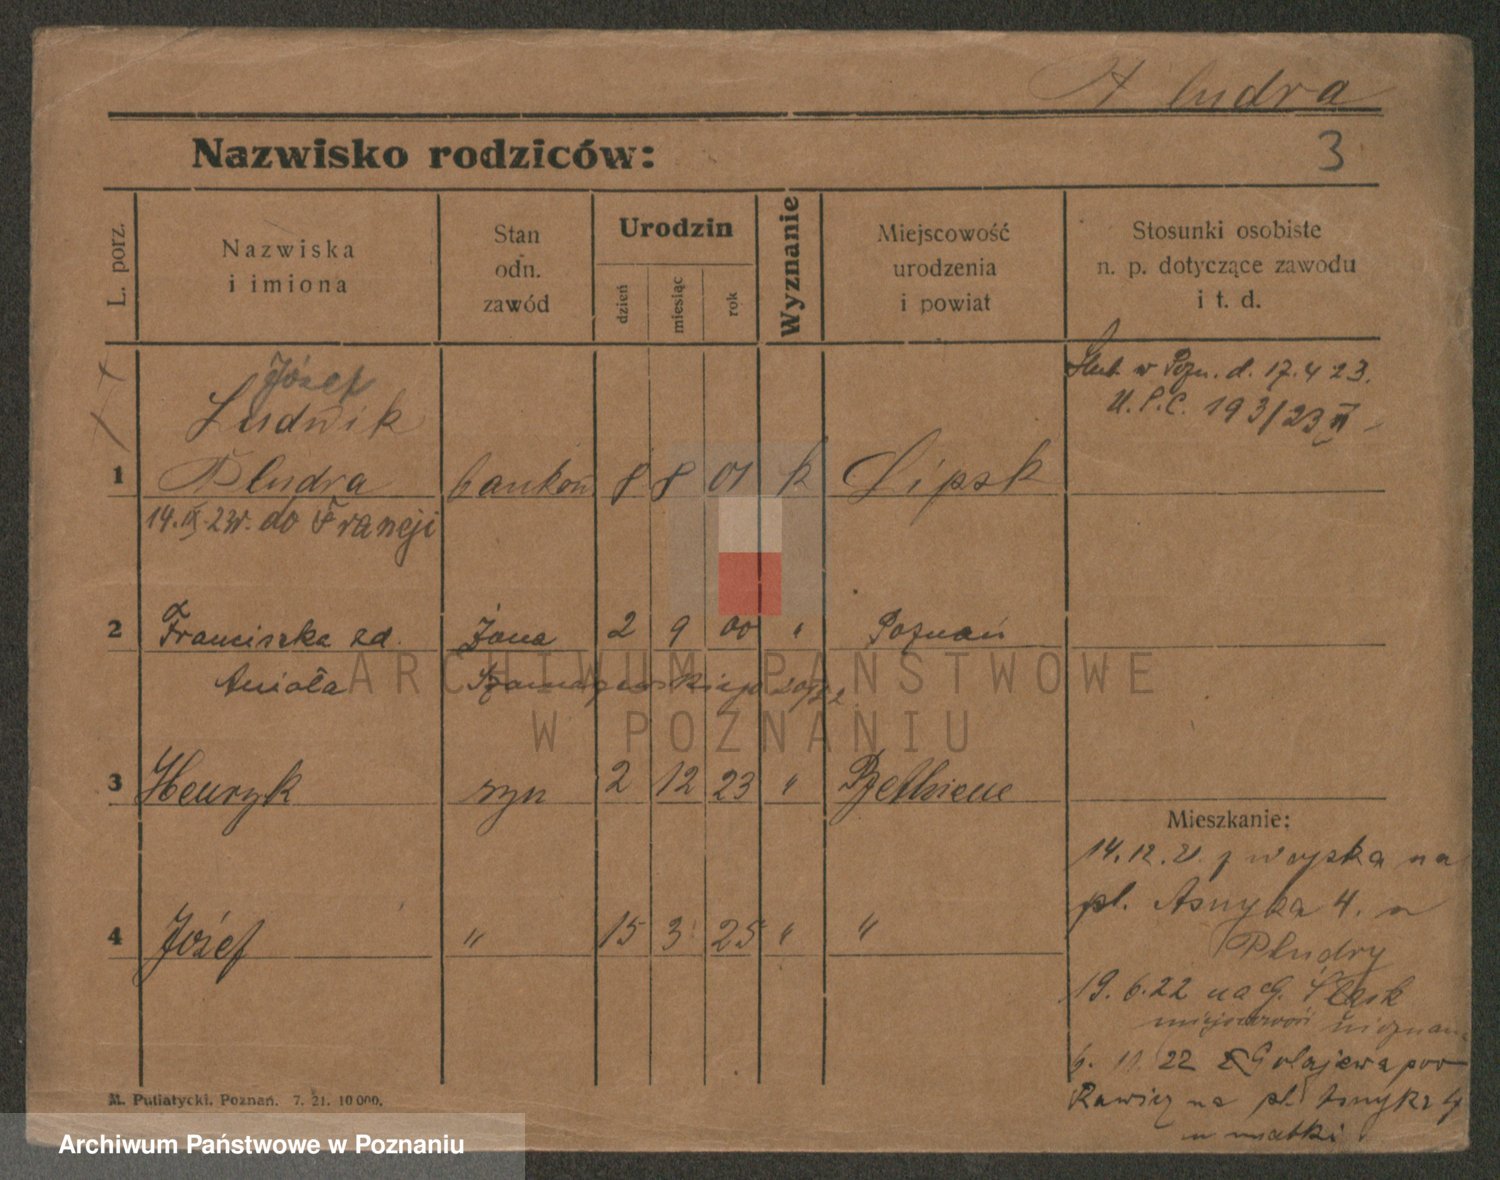 Pludra
3
Nazwisko rodziców:
L. porz.
Nazwiska
i imiona
Stan
odn.
zawód
Urodzin
dzień
miesiąc
rok
Wyznanie
Miejscowość
urodzenia
i powiat
Stosunki osobiste
n. p. dotyczące zawodu
i t. d.
Józef
Ludwik
1 Pludra 8 8 01 k Lipsk
14.IX.23r. do Francji
Ślub w Pozn. d. 17.4 23.
U.S.C. 193/23 II
2 Franciszka zd. Żona 2 9 00 " Poznań
Anioła
3 Henryk syn 2 12 23 " Bethune
4 Józef " 15 3 25 " "
Mieszkanie:
14.12.21. z wojska na
pl. Asnyka 4. u
Pludry
19.6.22 na G. Śląsk
miejscowość nieznana
6. 11 22 z Golejewa pow
Rawicz na pl. Asnyka 4
u matki
M. Putiatycki. Poznań. 7. 21. 10 000.
ARCHIWUM PAŃSTWOWE
W POZNANIU
Archiwum Państwowe w Poznaniu